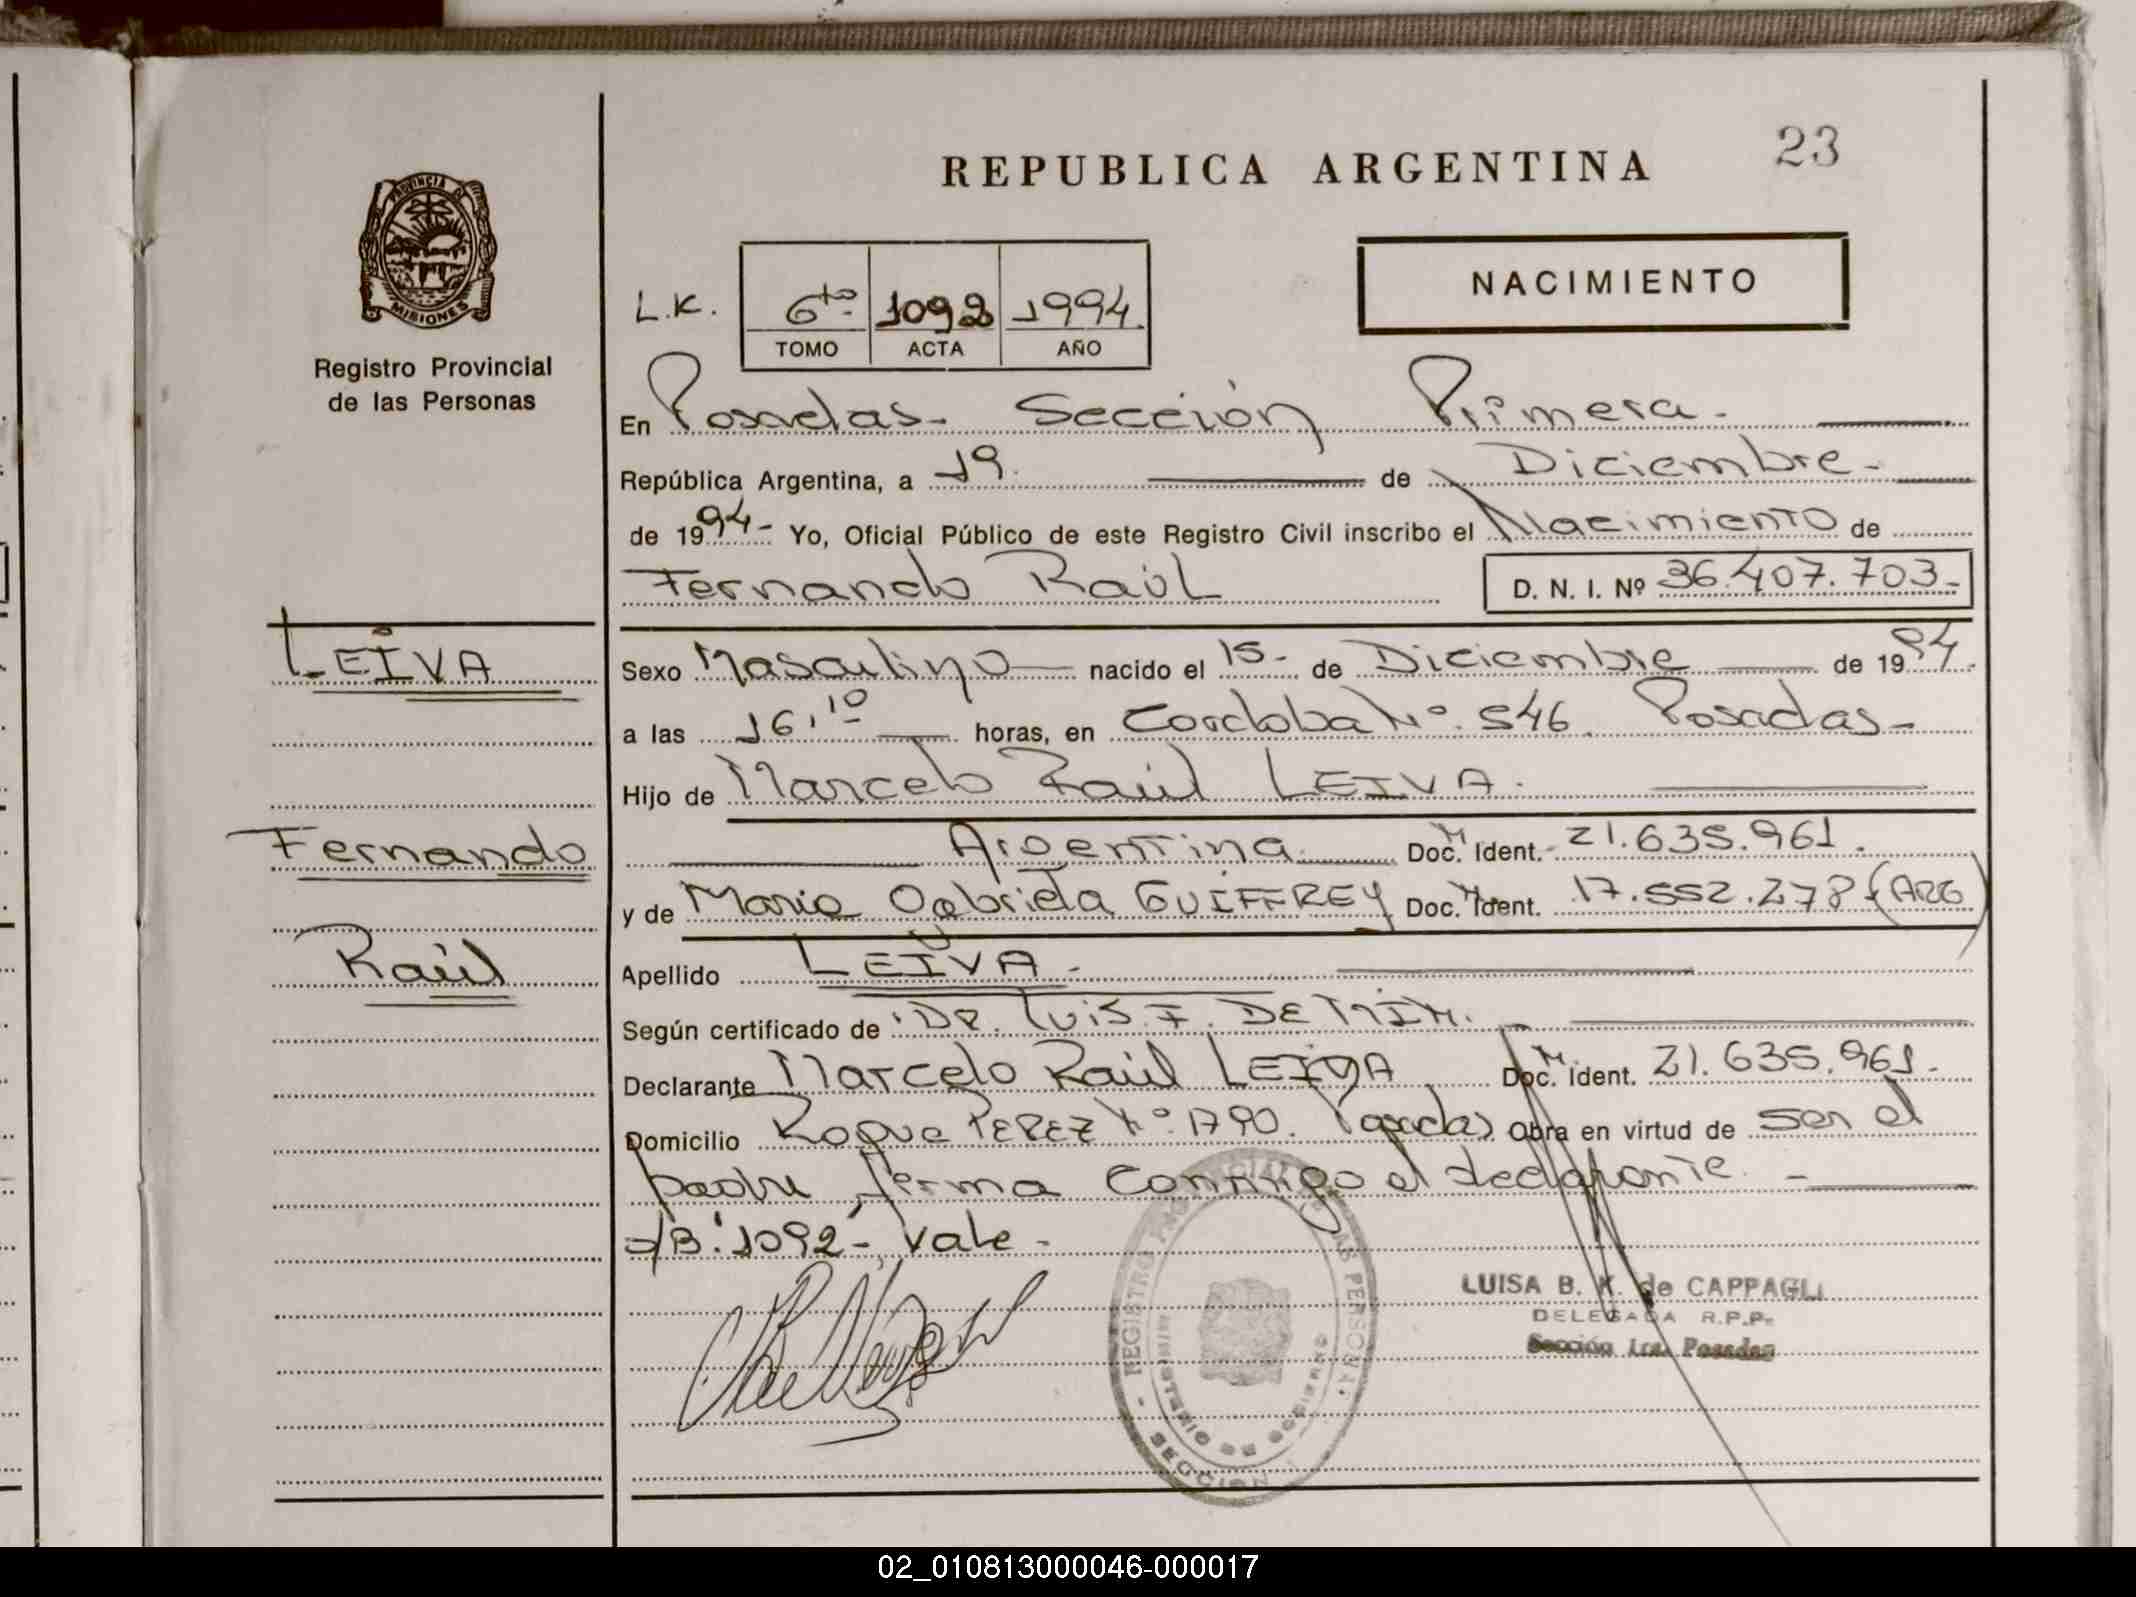 23
REPUBLICA ARGENTINA
PROVINCIA DE
MISIONES
Registro Provincial
de las Personas
NACIMIENTO
L.K. 6to 1092 1994
TOMO ACTA AÑO
En Posadas - Sección Primera -
República Argentina, a 19 de Diciembre -
de 1994 - Yo, Oficial Público de este Registro Civil inscribo el Nacimiento de
Fernando Raúl D. N. I. Nº 36.407.703 -
LEIVA
Sexo Masculino nacido el 15 - de Diciembre de 1994
a las 16,10 horas, en Cordoba Nº 546 Posadas -
Hijo de Marcelo Raúl LEIVA.
Fernando
Argentina Doc. M Ident. - 21.635.961.
y de Maria Gabriela GUIFFREY Doc. M Ident. 17.552.278 (ARG)
Raúl
Apellido LEIVA -
Según certificado de DR. Luis F. DE
Declarante Marcelo Raúl LEIVA Doc. M Ident. 21.635.961 -
Domicilio Roque PEREZ Nº 1790. Posadas Obra en virtud de ser el
padre firma conmigo el declarante. -
S/B: "1092", Vale -
REGISTRO PROVINCIAL DE LAS PERSONAS
MINISTERIO DE GOBIERNO
SECCION
LUISA B. K. de CAPPAGLI
DELEGADA R.P.P.
Sección 1ra. Posadas
02_010813000046-000017